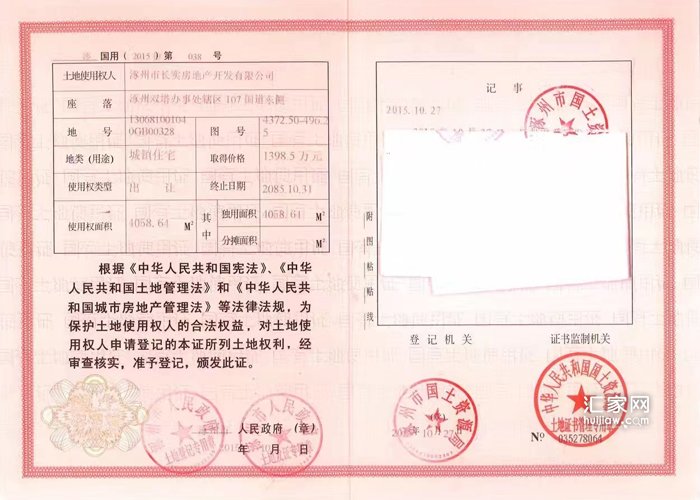 涿 国用（2015）第 038 号
土地使用权人 涿州市长实房地产开发有限公司
座 落 涿州双塔办事处辖区107国道东侧
地 号 1306810010400GB00328 图 号 4372.50-496.25
地类（用途） 城镇住宅 取得价格 1398.5万元
使用权类型 出让 终止日期 2085.10.31
使用权面积 4058.64 M² 其中 独用面积 4058.64 M²
分摊面积 M²
根据《中华人民共和国宪法》、《中华
人民共和国土地管理法》和《中华人民共
和国城市房地产管理法》等法律法规，为
保护土地使用权人的合法权益，对土地使
用权人申请登记的本证所列土地权利，经
审查核实，准予登记，颁发此证。
人民政府（章）
年 10 月 日
记 事
2015.10.27
附图粘贴线
登记机关
证书监制机关
涿州市国土资
涿州市国土资源局
2015年10月27日
中华人民共和国国土资
土地证书管理专用章
土地登记专用章
市人民政府
Nº 035278064
汇家网